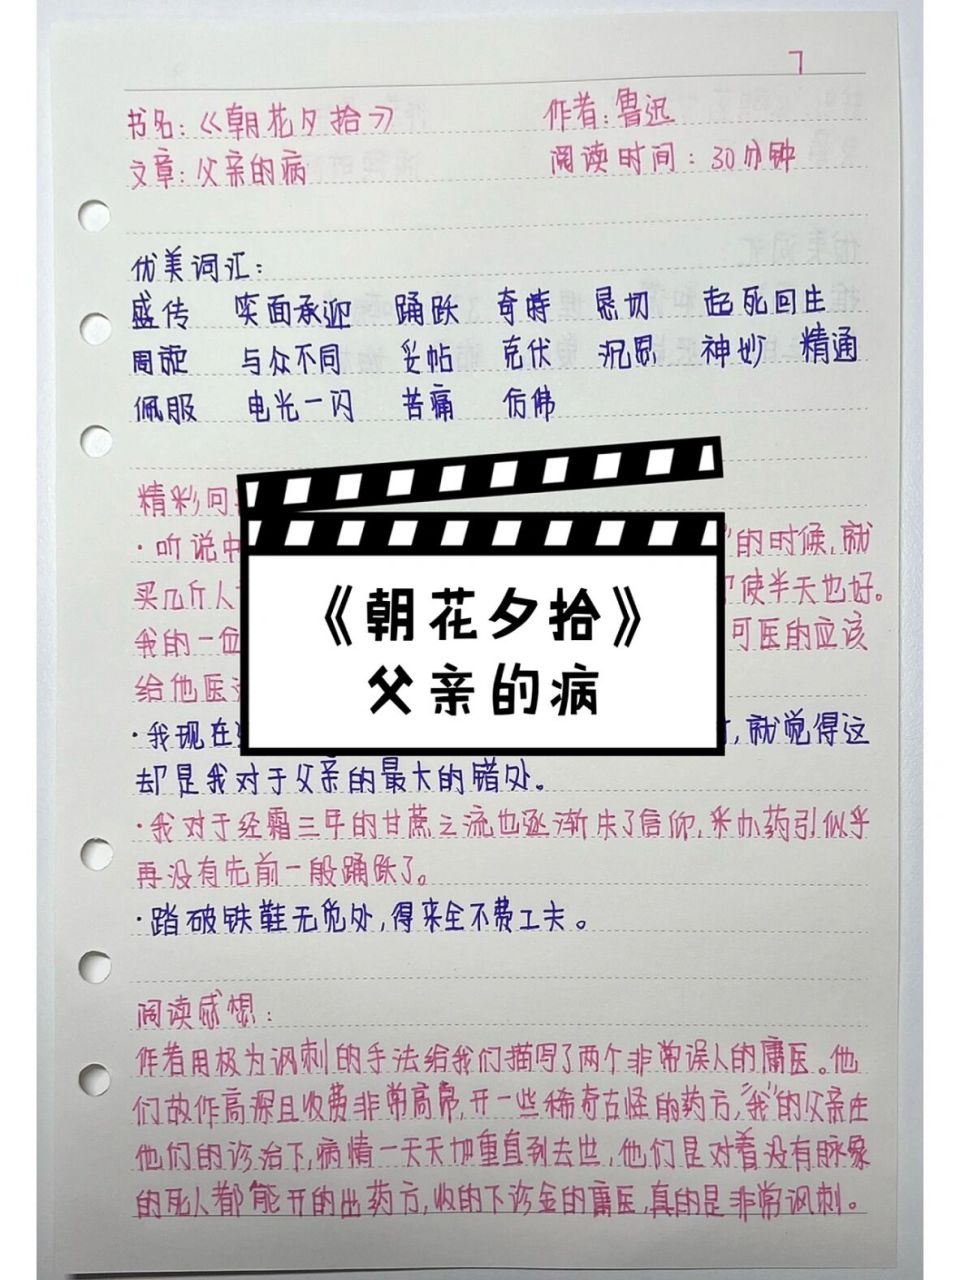 7
书名:《朝花夕拾》 作者:鲁迅
文章:父亲的病 阅读时间:30分钟
优美词汇:
盛传 笑面承迎 踊跃 奇特 恳切 起死回生
周旋 与众不同 妥帖 克伏 沉思 神妙 精通
佩服 电光一闪 苦痛 仿佛
精彩问
·听说中 的时候,就
买几斤人 使半天也好。
我的一位 可医的应该
给他医
·我现在 ,就觉得这
却是我对于父亲的最大的错处。
·我对于经霜三年的甘蔗之流也逐渐失了信仰,采办药引似乎
再没有先前一般踊跃了。
·踏破铁鞋无觅处,得来全不费工夫。
《朝花夕拾》
父亲的病
阅读感想:
作者用极为讽刺的手法给我们描写了两个非常误人的庸医。他
们故作高深且收费非常高昂,开一些稀奇古怪的药方,“我”的父亲在
他们的诊治下,病情一天天加重直到去世,他们是对着没有脉象
的死人都能开的出药方,收的下诊金的庸医,真的是非常讽刺。